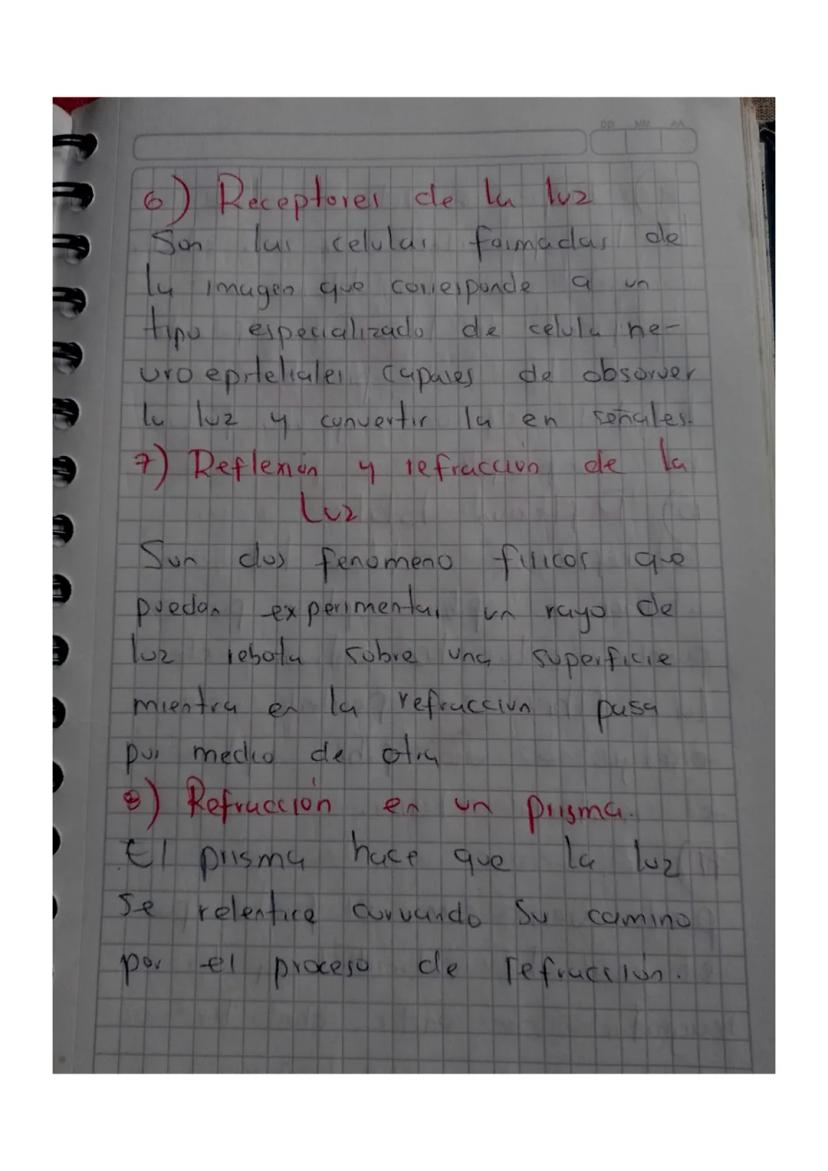 DD MM AA
6) Receptores de la luz
Son las celulas formadas de
la imagen que corresponde a un
tipo especializado de celula ne-
uroepiteliales capases de observer
la luz y convertir la en señales.
7) Reflexion y refraccion de la
Luz
Son dos fenomeno fisicos que
puedan experimentar un rayo de
luz rebota sobre una superficie
mientra en la refraccion pasa
por medio de otra
8) Refracción en un prisma.
El prisma hace que la luz
se relentice curvando su camino
por el proceso de refracción.